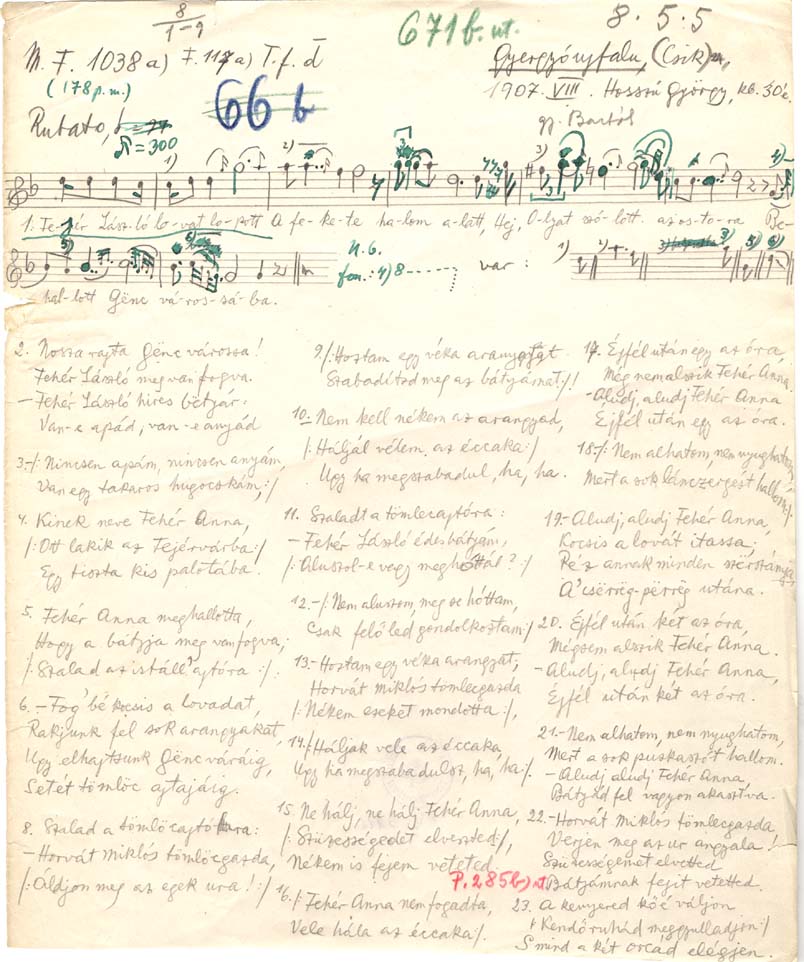 8
1-9
671 b. ut.
8. 5. 5
M. F. 1038 a) F. 117 a) T. f. d
Gyergyóujfalu, (Csik)
(178 p.m.)
66 b
1907. VIII. Hosszú György, kb. 30 é.
Rubato,
gy. Bartók
= 300
1) 2) 3) 4)
1. Fe-hér Lász-ló lo-vat lo-pott A fe-ke-te ha-lom a-latt, Hej, O-lyat szó-lott az os-to-ra Be-
N. G.
fon.: 4) 8
var:
1) 2) 3) 5) 6)
hal-lott Gënc vá-ros-sá-ba.
2. Nosza rajta Gënc várossa!
Fehér László meg van fogva.
– Fehér László hires bëtyár.
Van-e apád, van-e anyád
3. –/: Nincsen apám, nincsen anyám,
Van egy takaros hugocskám, :/
4. Kinek neve Fehér Anna,
/: Ott lakik az Fejérvárba :/
Egy tiszta kis palotába.
5. Fehér Anna meghallotta,
Hogy a bátyja meg van fogva,
/: Szalad az istáll' ajtóra :/.
6. – Fog' bé kocsis a lovadat,
Rakjunk fel sok arangyakat,
Ugy elhajtsunk Gënc váráig,
Setét tömlöc ajtajáig.
8. Szalad a tömlöcajtóra:
– Horvát Miklós tömlöcgazda,
/: Áldjon meg az egek ura! :/
9. /: Hoztam egy véka aranyat
Szabadítsd meg az bátyámat, :/!
10. Nem kell nékem az arangyad,
/: Háljál vélem az éccaka :/
Ugy ha megszabadul, ha, ha.
11. Szaladt a tömlecajtóra:
– Fehér László édesbátyám,
/: Aluszol-e vagy meghóttál? :/
12. –/: Nem aluszom, meg se hóttam,
Csak felőled gondolkoztam :/
13. – Hoztam egy véka arangyát,
Horvát Miklós tömlecgazda
/: Nékem eseket mondotta :/,
14. /: Háljak vele az éccaka,
Ugy ha megszabadulsz, ha, ha :/.
15. Ne hálj, ne hálj Fehér Anna,
/: Szüzességedet elveszted :/,
Nékem is fejem veteted.
P. 285 b) ut.
16. /: Fehér Anna nem fogadta,
Vele hála az éccaka :/.
17. Éjfél után egy az óra,
Még nem alszik Fehér Anna.
– Aludj, aludj Fehér Anna
Éjfél után egy az óra.
18. –/: Nem alhatom, nem nyughatom,
Mert a sok lánczergést hallom :/
19. – Aludj, aludj Fehér Anna,
Kocsis a lovát itassa;
Réz annak minden szërszámja,
A' csërrëg-përrëg utána.
20. Éjfél után két az óra,
Mégsem alszik Fehér Anna.
– Aludj, aludj Fehér Anna,
Éjfél után két az óra.
21. – Nem alhatom, nem nyughatom,
Mert a sok puskaszót hallom.
– Aludj aludj Fehér Anna,
Bátyád fel vagyon akasztva.
22. – Horvát Miklós tömlecgazda,
Verjen meg az ur angyala!
Szüzességemet elvetted
Bátyámnak fejit vetetted.
23. A kenyered kőé váljon
/: Kendőruhád meggyulladjon :/
S mind a két orcád elégjen.